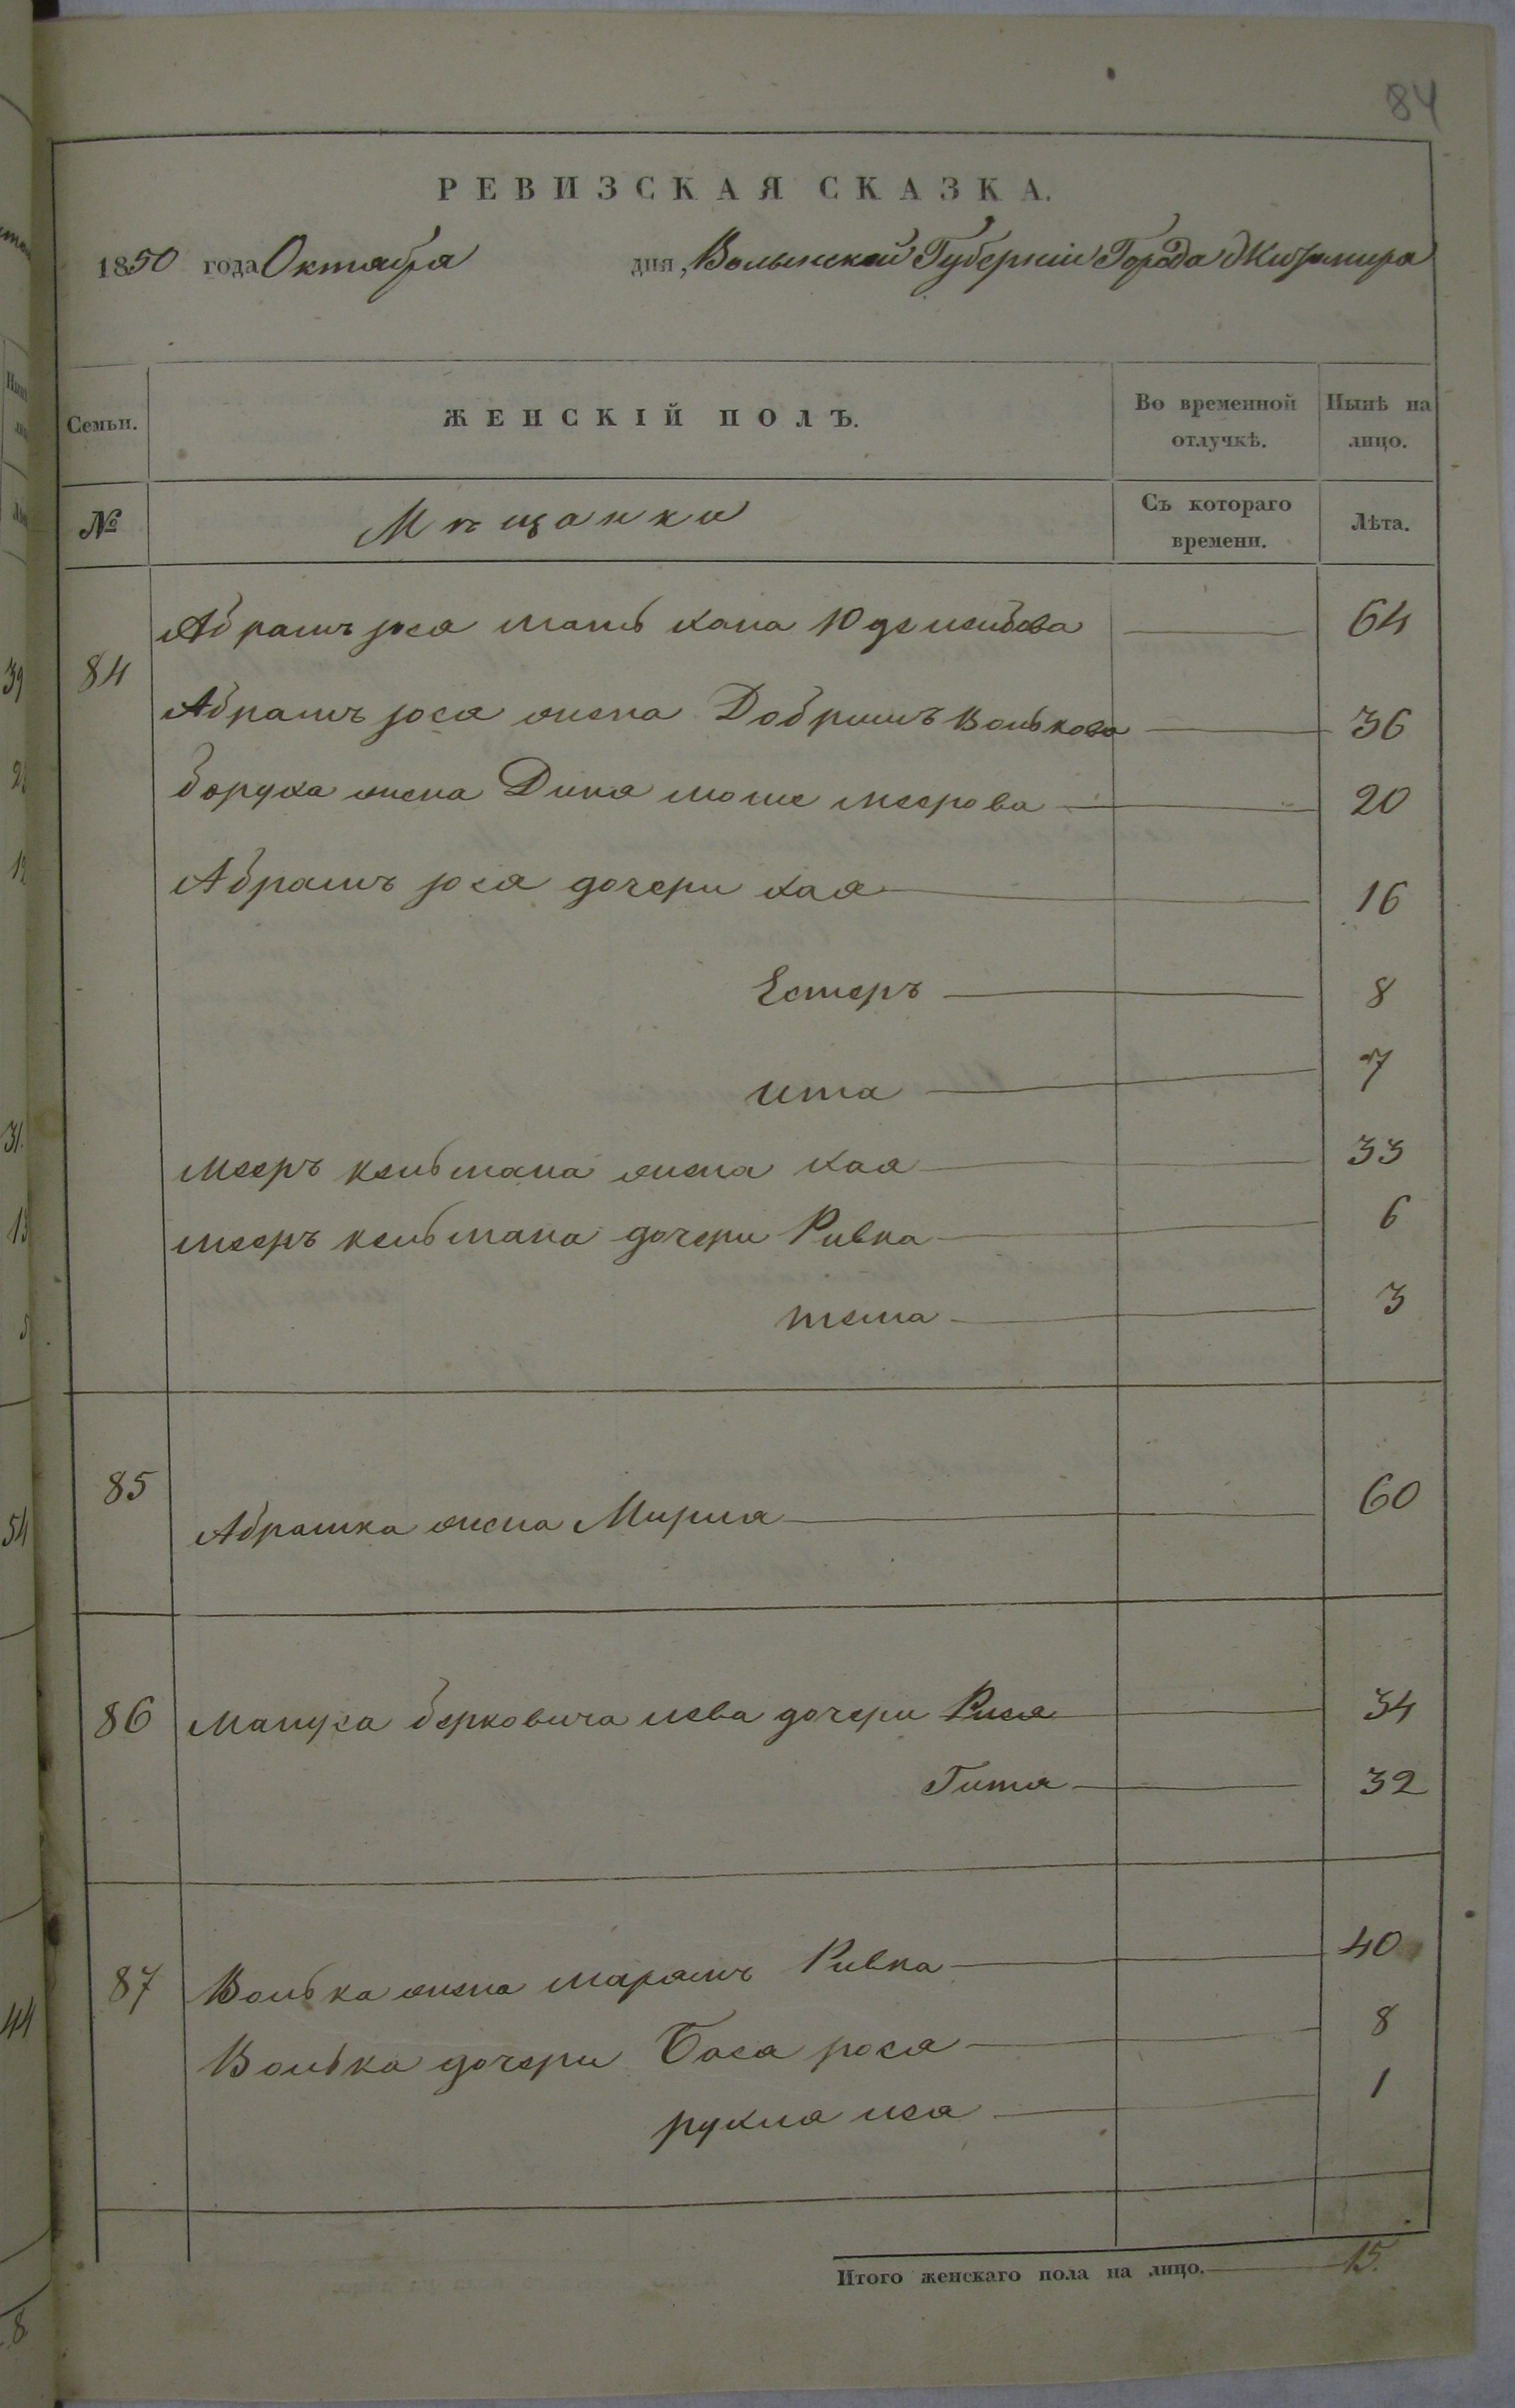 84
РЕВИЗСКАЯ СКАЗКА.
1850 года Октября дня, Волынской Губерніи Города Житомира
Семьи. ЖЕНСКІЙ ПОЛЪ. Во временной отлучкѣ. Нынѣ на лицо.
№ Мѣщанки Съ котораго времени. Лѣта.
84 Абрамъ мать хана 64
Абрамъ жена Добришъ волькова 36
боруха жена Дина моше меерова 20
Абрамъ дочери хая 16
Естеръ 8
ита 7
мееръ кельмана жена хая 33
мееръ кельмана дочери Ривка 6
3
85 Абрашка жена Мирля 60
86 берковича дочери 34
Гитля 32
87 Волька жена Ривка 40
Волька дочери Бася рося 8
рухля 1
Итого женскаго пола на лицо. 15.